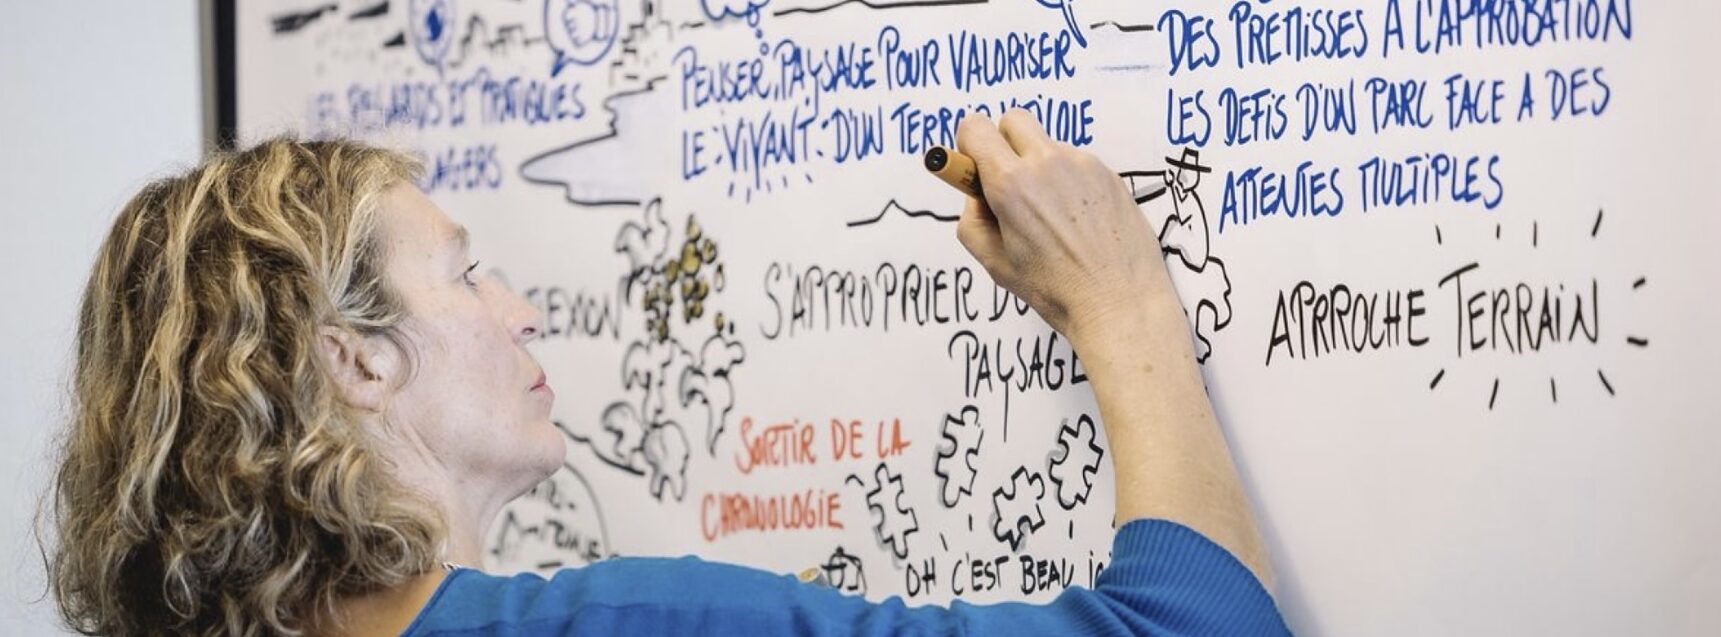 LES REGARDS ET PRATIQUES
PENSER, PAYSAGE POUR VALORISER
LE VIVANT : D'UN
DES PREMISSES A L'APPROBATION
LES DEFIS D'UN PARC FACE A DES
ATTENTES MULTIPLES
S'APPROPRIER
PAYSAGE
APRROCHE TERRAIN
SORTIR DE LA
CHRONOLOGIE
OH C'EST BEAU